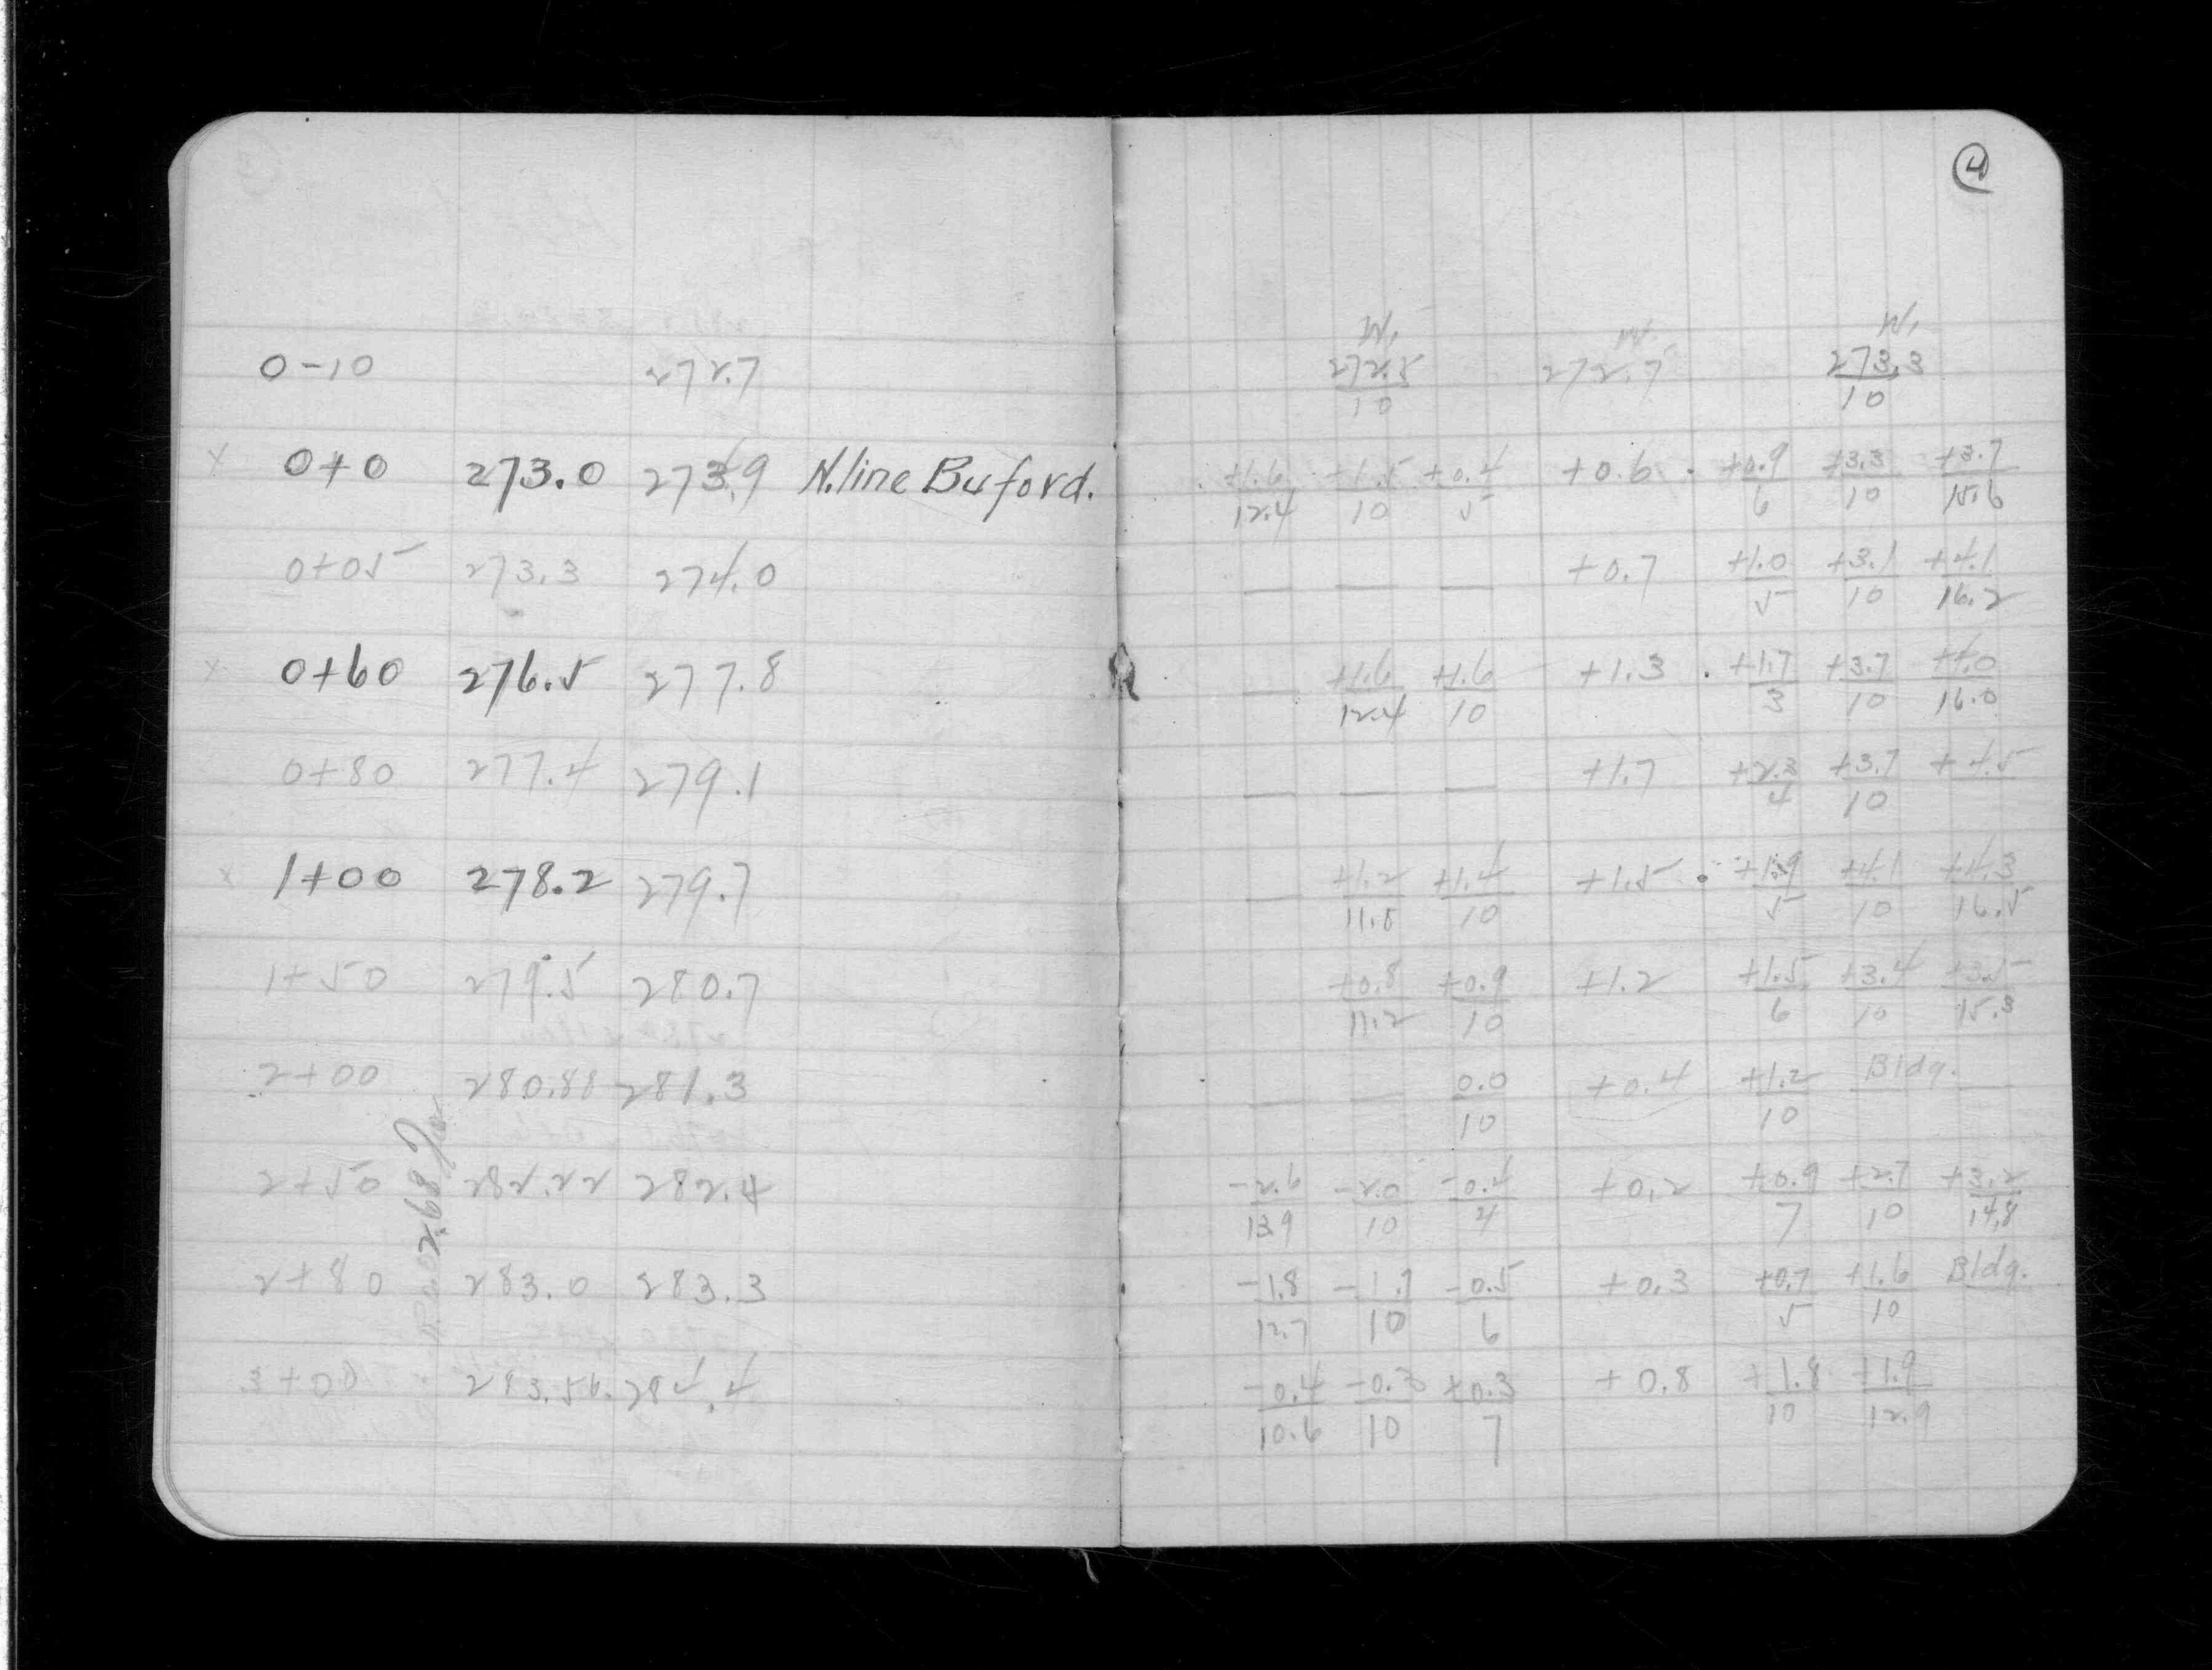 4
0-10 272.7 272.5/10 272.7 273.3/10
x 0+0 273.0 273.9 N.line Buford. +1.6/12.4 +1.5/10 +0.4/5 +0.6 +0.9/6 +3.3/10 +3.7/15.6
0+05 273.3 274.0 — — — +0.7 +1.0/5 +3.1/10 +4.1/16.2
x 0+60 276.5 277.8 — +1.6/12.4 +1.6/10 +1.3 +1.7/3 +3.7/10 +4.0/16.0
0+80 277.4 279.1 — — — +1.7 +2.3/4 +3.7/10 +4.5
x 1+00 278.2 279.7 — +1.2/11.8 +1.4/10 +1.5 +1.9/5 +4.1/10 +4.3/16.5
1+50 279.5 280.7 +0.8/11.2 +0.9/10 +1.2 +1.5/6 +3.4/10 +3.5/15.3
2+00 280.88 281.3 — — 0.0/10 +0.4 +1.2/10 Bldg. —
2+50 282.22 282.4 -2.6/13.9 -2.0/10 -0.4/4 +0.2 +0.9/7 +2.7/10 +3.2/14.8
2+80 283.0 283.3 -1.8/12.7 -1.7/10 -0.5/6 +0.3 +0.7/5 +1.6/10 Bldg.
3+00 283.56 284.4 -0.4/10.6 -0.3/10 +0.3/7 +0.8 +1.8/10 +1.9/12.9
2.68